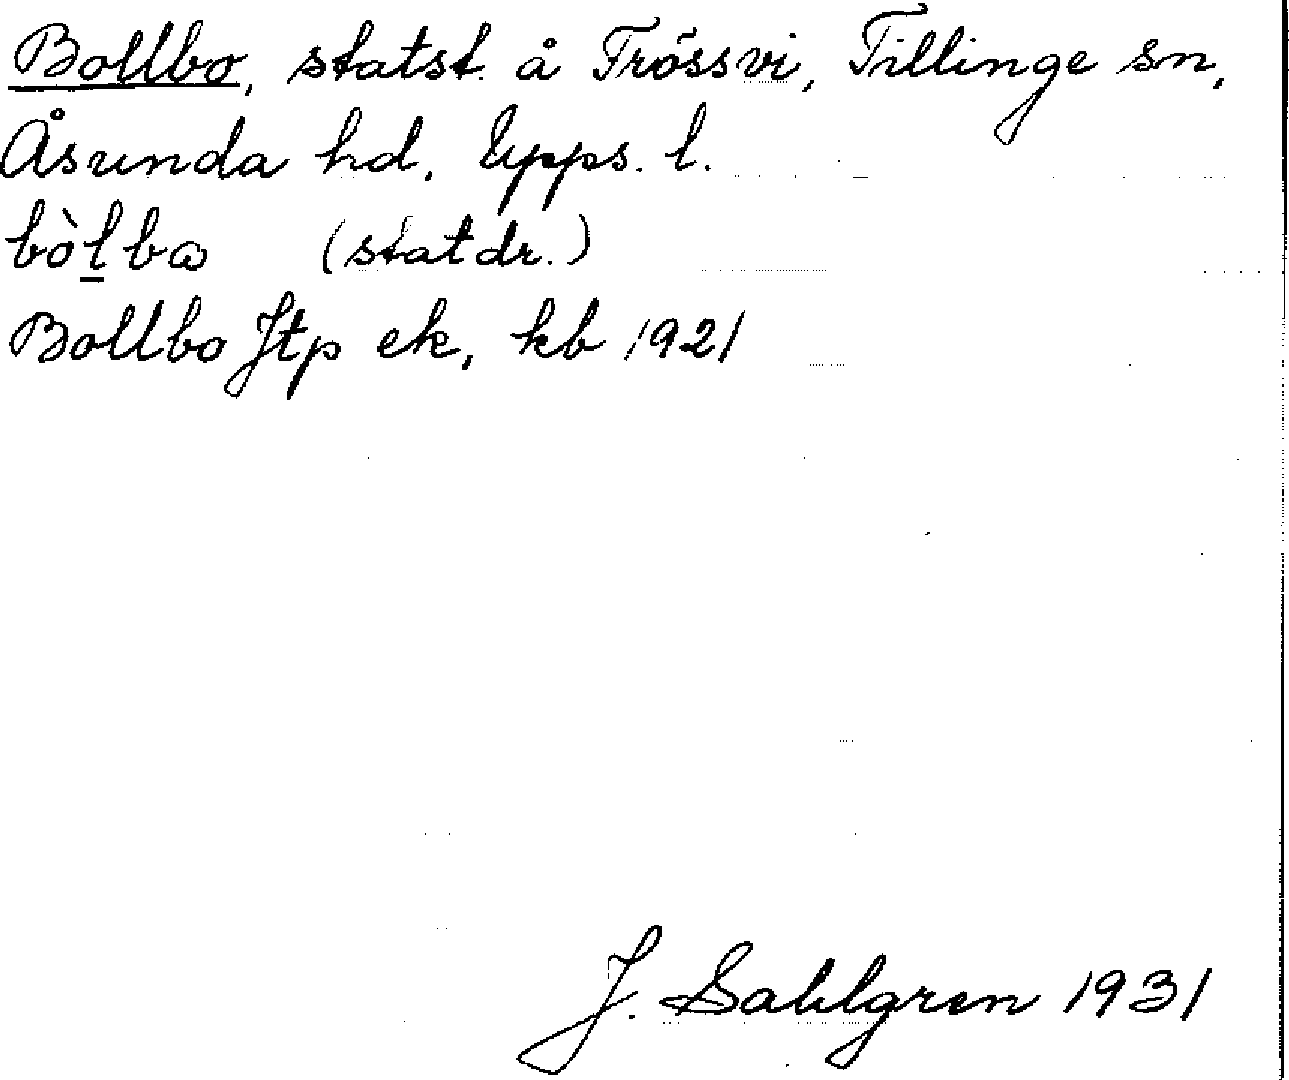 Bollbo, statst. å Trössvi, Tillinge sn,
Åsunda hd, Upps. l.
bòl̲bω (statdr.)
Bollbo Jtp ek, kb 1921
J. Sahlgren 1931